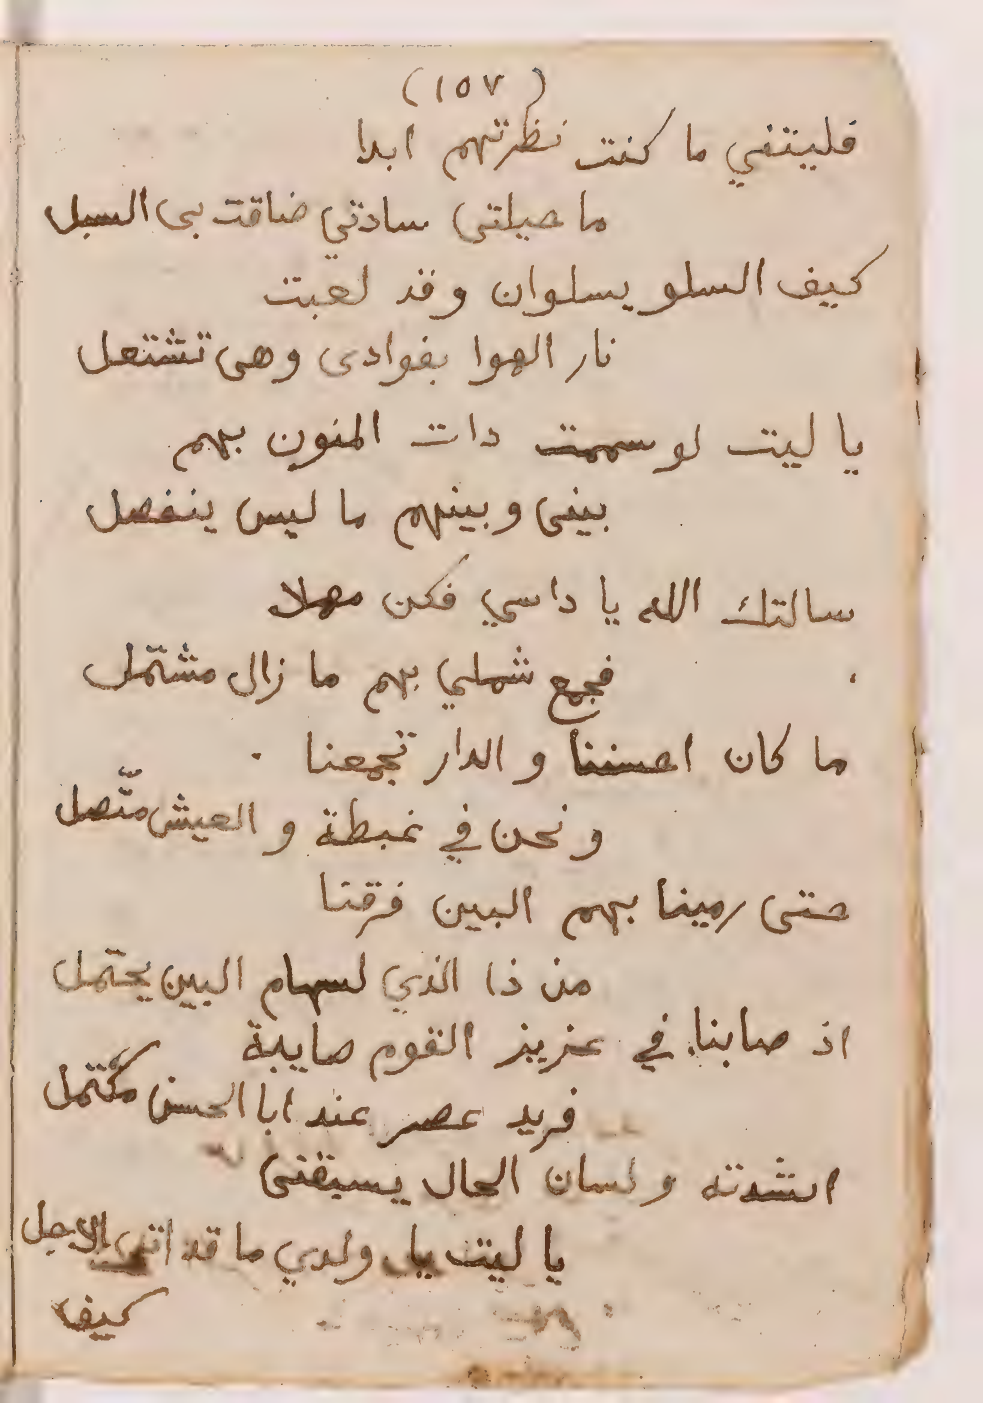 (١٥٧)
فليتني ما كنت نظرتهم ابدا
ما حيلتي سادتي ضاقت بى السبل
كيف السلو يسلوان وقد لعبت
نار الهوا بفوادى وهى تشتعل
يا ليت لو سممت دات المنون بهم
بينى وبينهم ما ليس ينفصل
سالتك الله يا داسي فكن مهلا
فجمع شملي بهم ما زال مشتمل
ما كان احسننا و الدار تجمعنا
ونحن في غبطة و العيش متّصل
حتى رمينا بهم البين فرقنا
من ذا الذي لسهام البين يحتمل
اذ صابنا في عزيز القوم صايبة
فريد عصر عند ابا الحسن مكتمل
انشدته ولسان الحال يسبقنى
يا ليت يا ولدي ما قد اتى الاجل
كيف